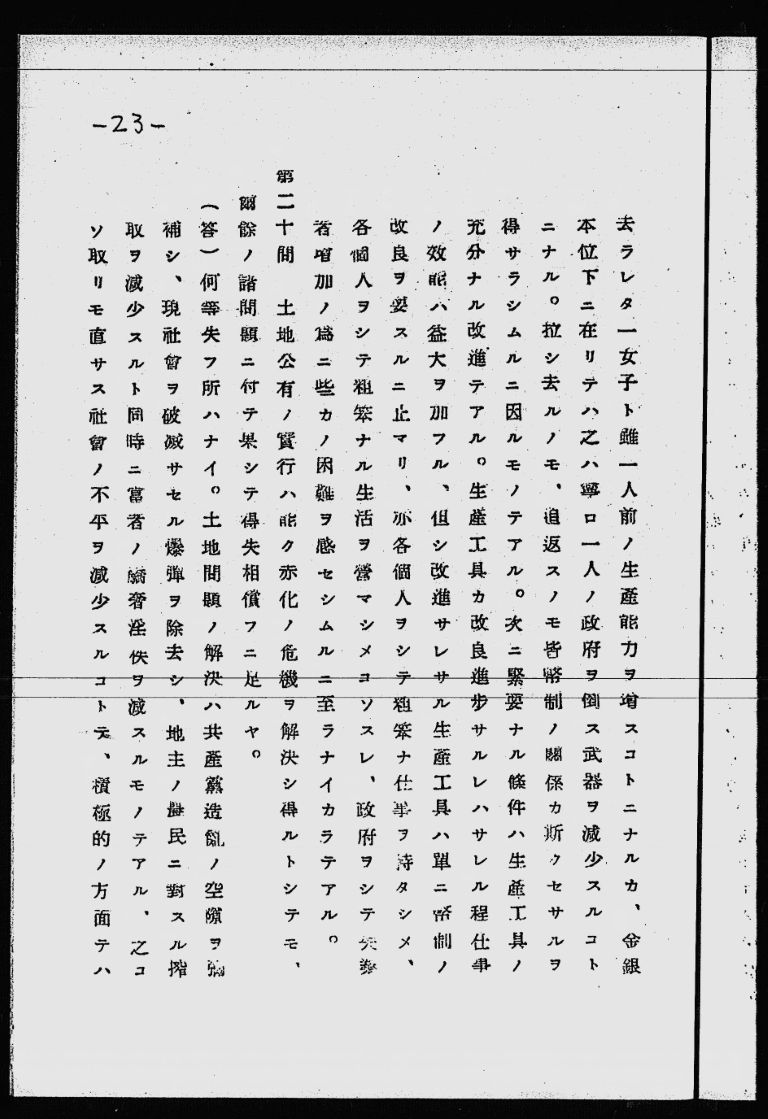 -23-
去ラレタ一女子ト雖一人前ノ生産能力ヲ増スコトニナルカ、金銀
本位下ニ在リテハ之ハ寧ロ一人ノ政府ヲ倒ス武器ヲ減少スルコト
ニナル。拉シ去ルノモ、追返スノモ皆幣制ノ關係カ斯クセサルヲ
得サラシムルニ因ルモノテアル。次ニ緊要ナル條件ハ生産工具ノ
充分ナル改進テアル。生産工具カ改良進步サルレハサレル程仕事
ノ效能ハ益大ヲ加フル、但シ改進サレサル生産工具ハ單ニ幣制ノ
改良ヲ妥スルニ止マリ、亦各個人ヲシテ粗笨ナ仕事ヲ待タシメ、
各個人ヲシテ粗笨ナル生活ヲ營マシメコソスレ、政府ヲシテ失業
者增加ノ爲ニ些カノ困難ヲ感セシムルニ至ラナイカラテアル。
第二十問　土地公有ノ實行ハ能ク赤化ノ危機ヲ解決シ得ルトシテモ、
爾餘ノ諸問題ニ付テ果シテ得失相償フニ足ルヤ。
(答)何等失フ所ハナイ。土地問題ノ解決ハ共產黨造亂ノ空隙ヲ彌
補シ、現社會ヲ破滅サセル爆彈ヲ除去シ、地主ノ農民ニ對スル搾
取ヲ減少スルト同時ニ富者ノ驕奢淫佚ヲ減スルモノテアル、之コ
ソ取リモ直サス社會ノ不平ヲ減少スルコトテ、積極的ノ方面テハ